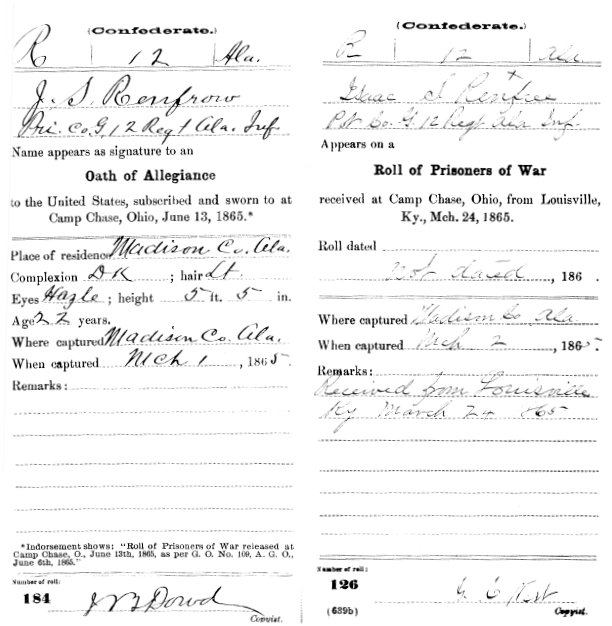 (Confederate.)
R | 12 | Ala.
J. S. Renfrow
Pri. Co. G, 12 Regt Ala. Inf.
Name appears as signature to an
Oath of Allegiance
to the United States, subscribed and sworn to at
Camp Chase, Ohio, June 13, 1865.*
Place of residence Madison Co. Ala.
Complexion DK ; hair Lt.
Eyes Hazle ; height 5 ft. 5 in.
Age 22 years.
Where captured Madison Co. Ala.
When captured Mch 1 , 1865.
Remarks:
*Indorsement shows: "Roll of Prisoners of War released at
Camp Chase, O., June 13th, 1865, as per G. O. No. 109, A. G. O.,
June 6th, 1865."
Number of roll:
184 J B Dowd
Copyist.
(Confederate.)
R | 12 | Ala
Isaac S Renfree
Pvt Co. G. 12 Regt Ala Inf.
Appears on a
Roll of Prisoners of War
received at Camp Chase, Ohio, from Louisville,
Ky., Mch. 24, 1865.
Roll dated
Not dated , 186 .
Where captured Madison Co Ala
When captured Mch 2 , 1865.
Remarks:
Received from Louisville
Ky March 24 865
Number of roll:
126
(639b) Copyist.